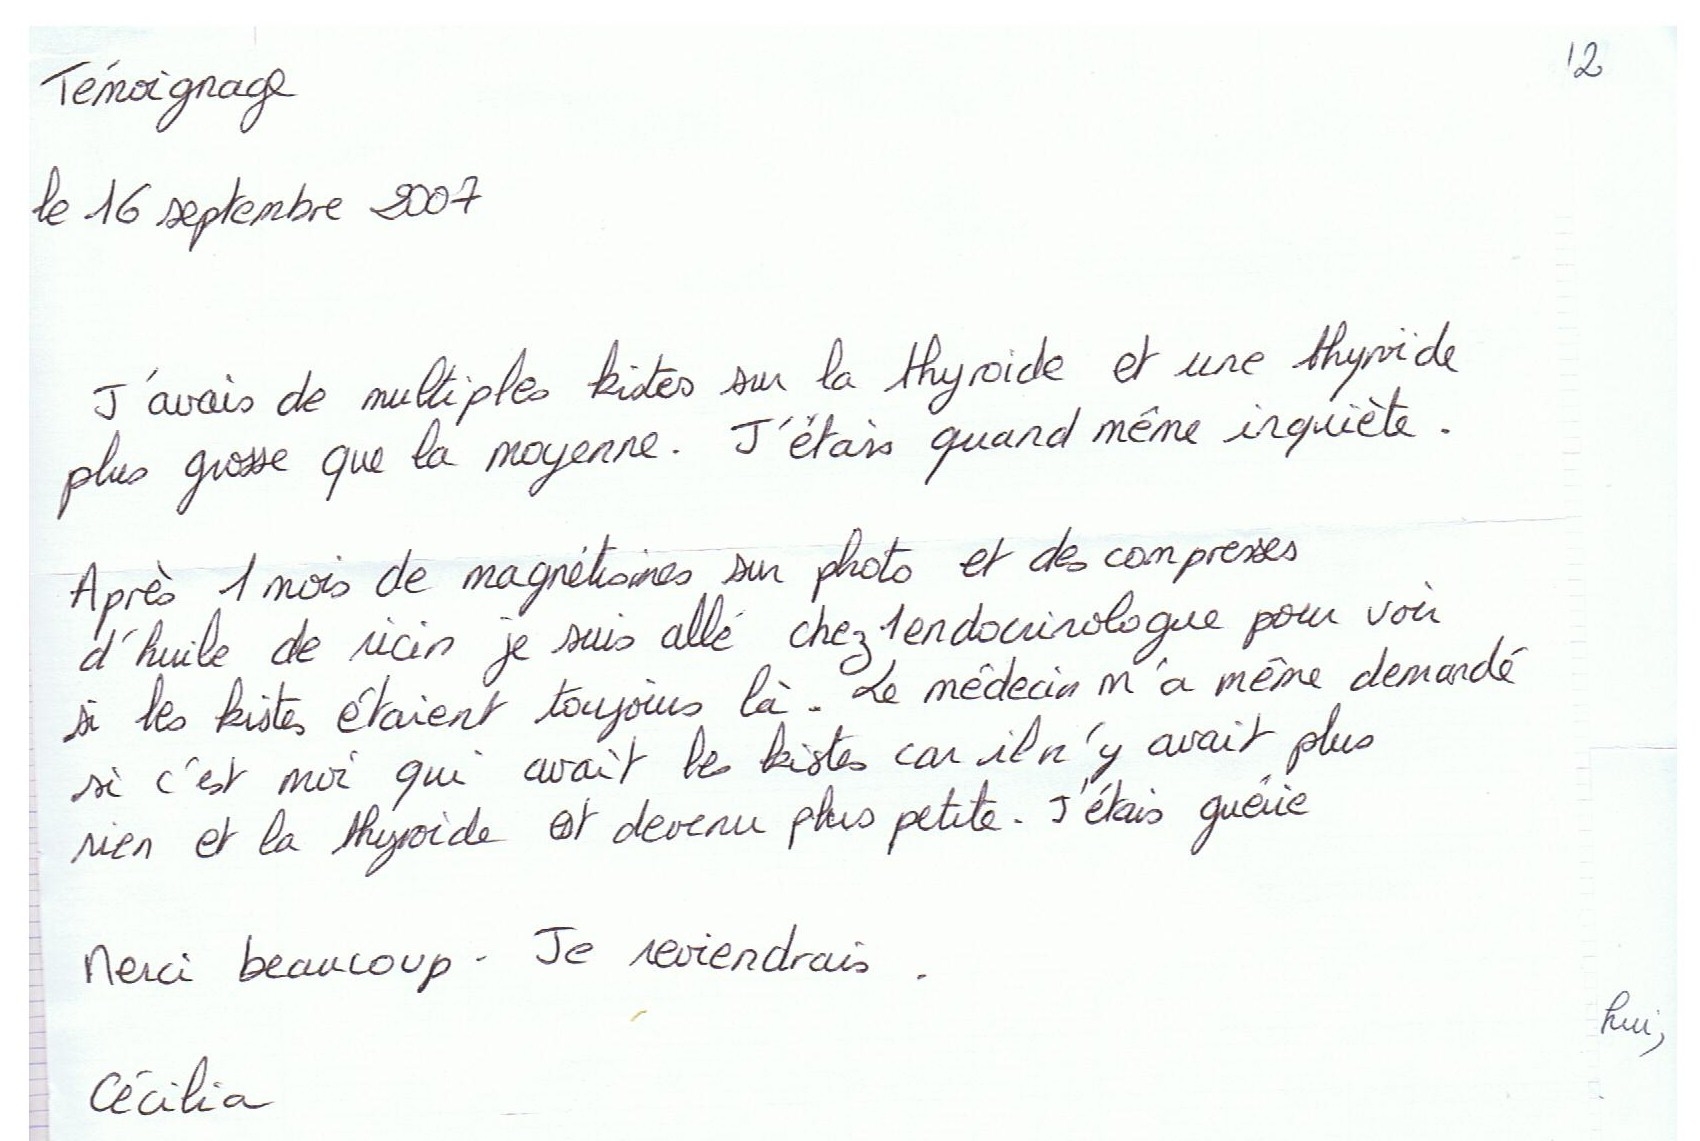 12
Témoignage
le 16 septembre 2007
J'avais de multiples kistes sur la thyroide et une thyroïde
plus grosse que la moyenne. J'étais quand même inquiète.
Après 1 mois de magnétismes sur photo et des compresses
d'huile de ricin je suis allé chez 1 endocrinologue pour voir
si les kistes étaient toujours là. Le médecin m'a même demandé
si c'est moi qui avait les kistes car il n'y avait plus
rien et la thyroide est devenu plus petite. J'étais guérie
Merci beaucoup. Je reviendrais.
hui,
Cécilia